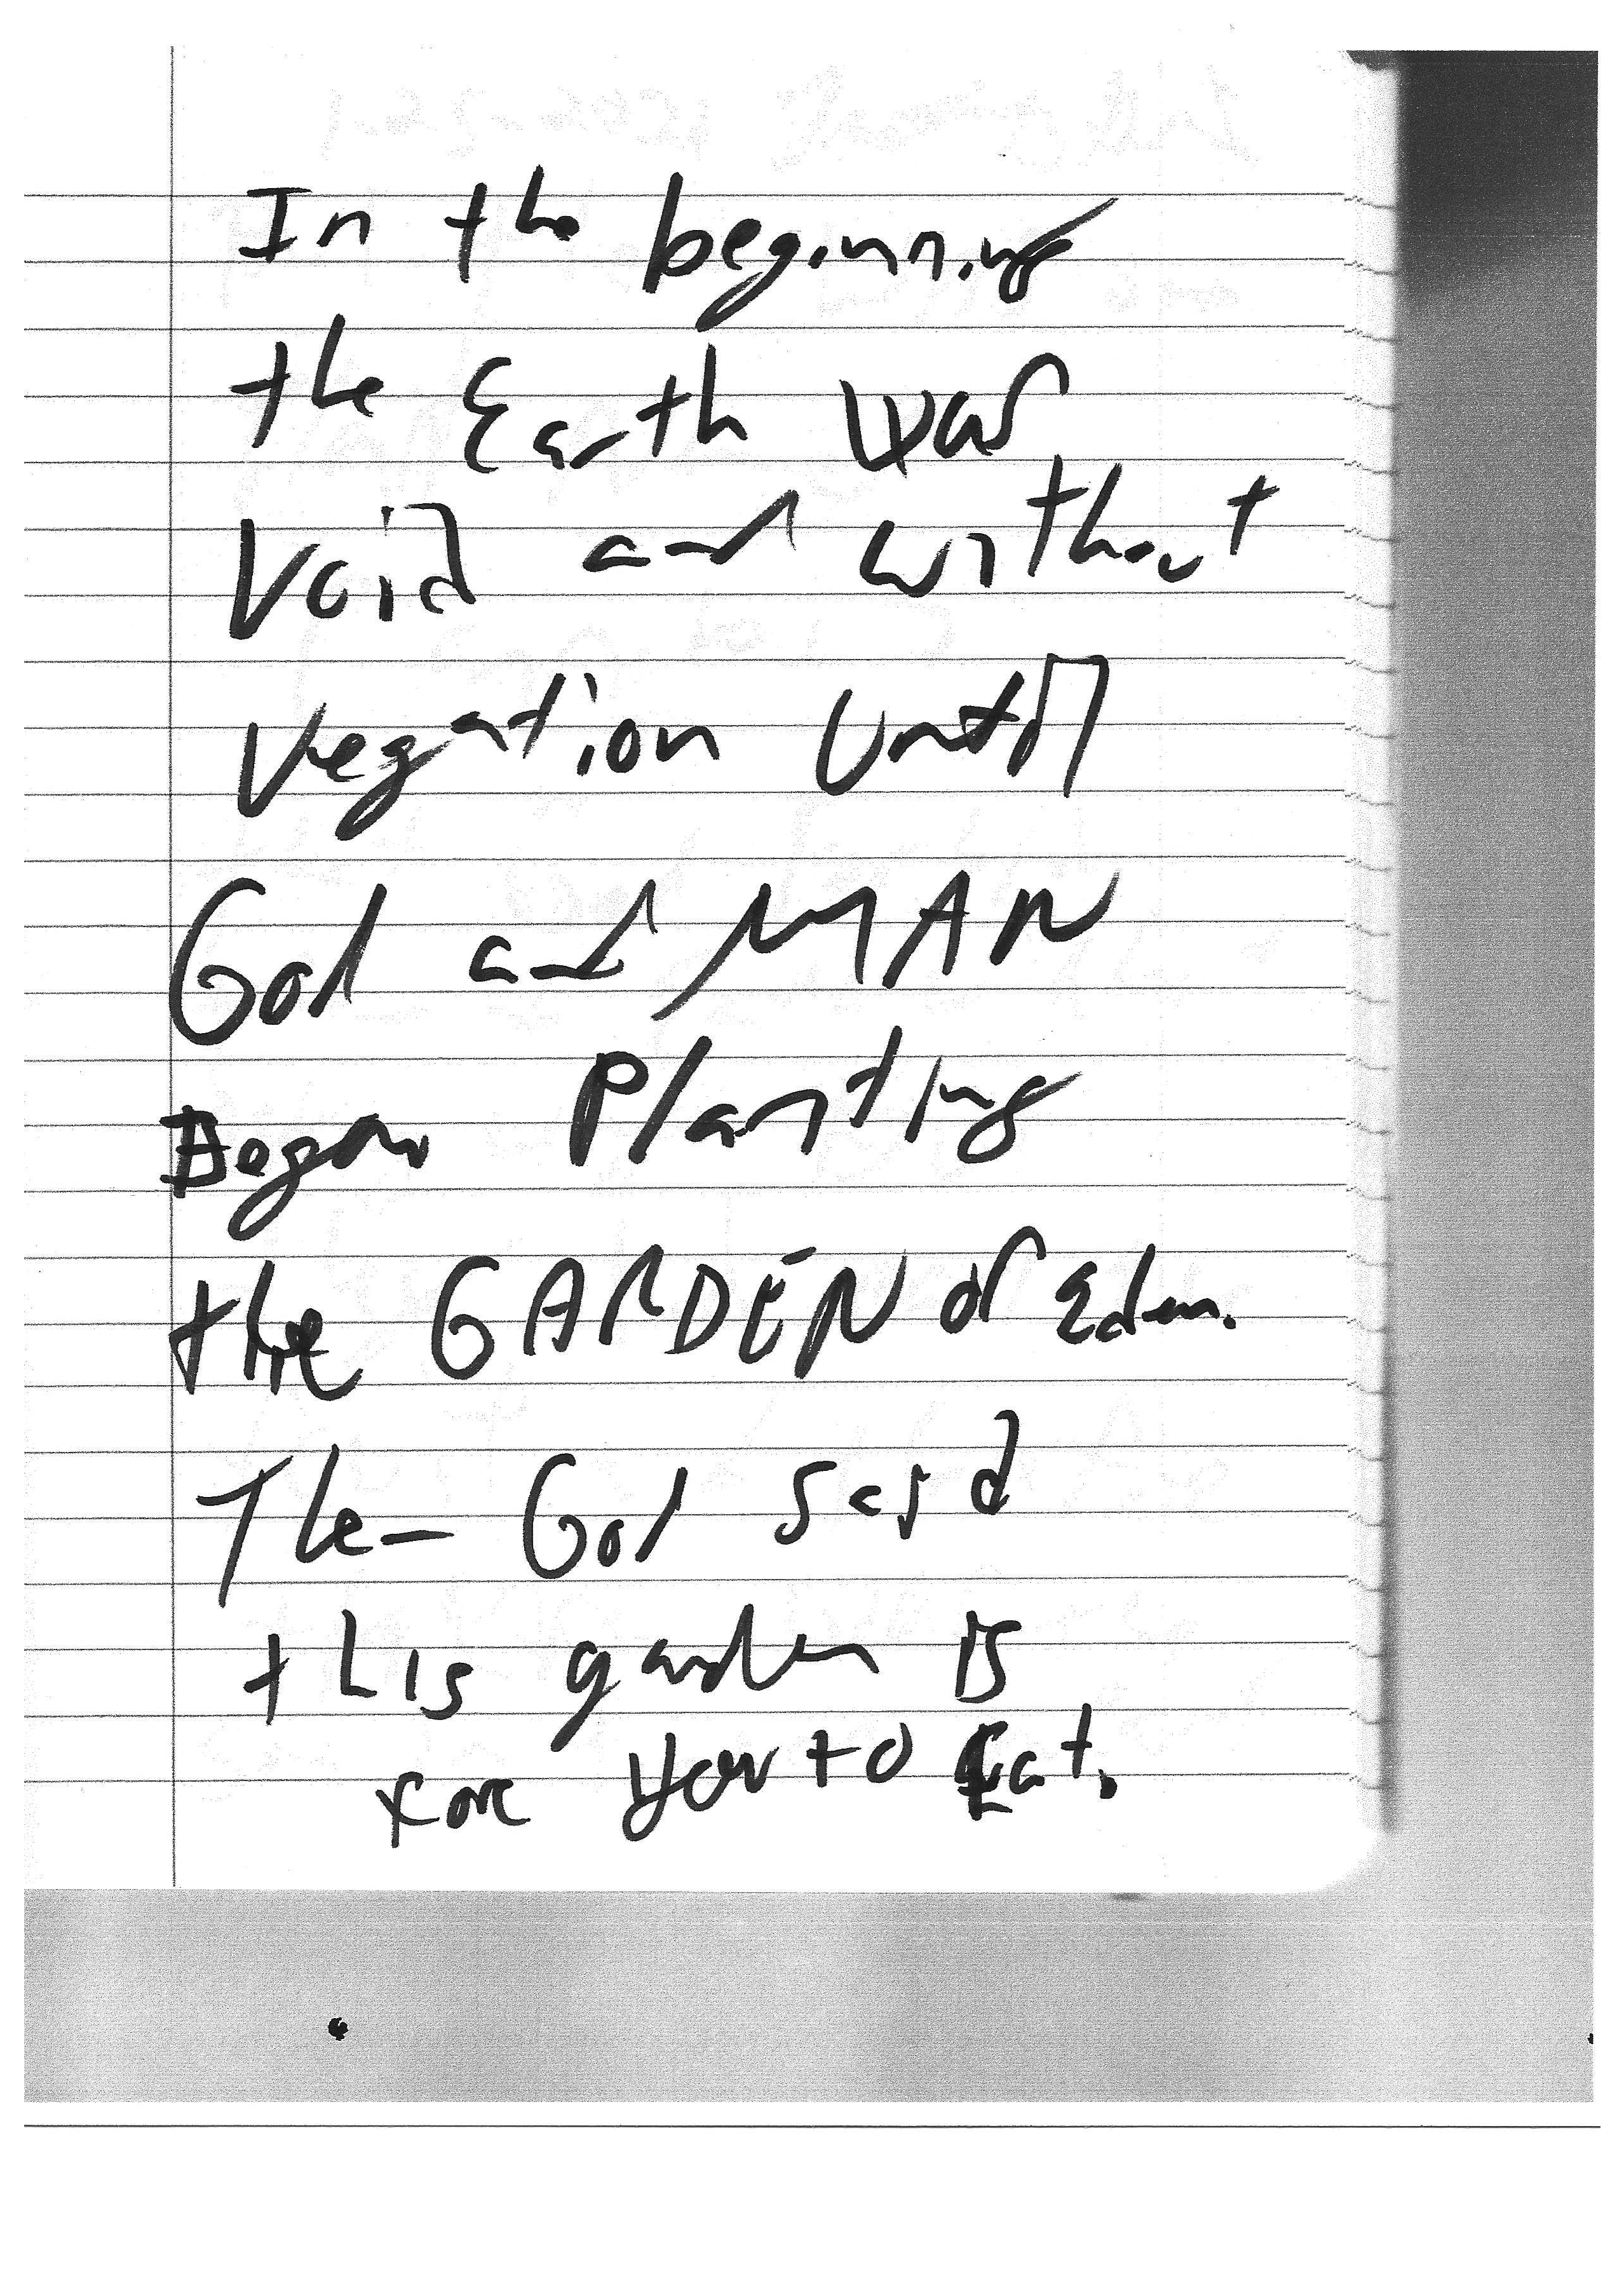 In the beginning
the Earth was
Void and without
Vegation Until
God and MAN
Began Planting
the GARDEN of Eden.
Then God said
this garden is
fore you to Eat.